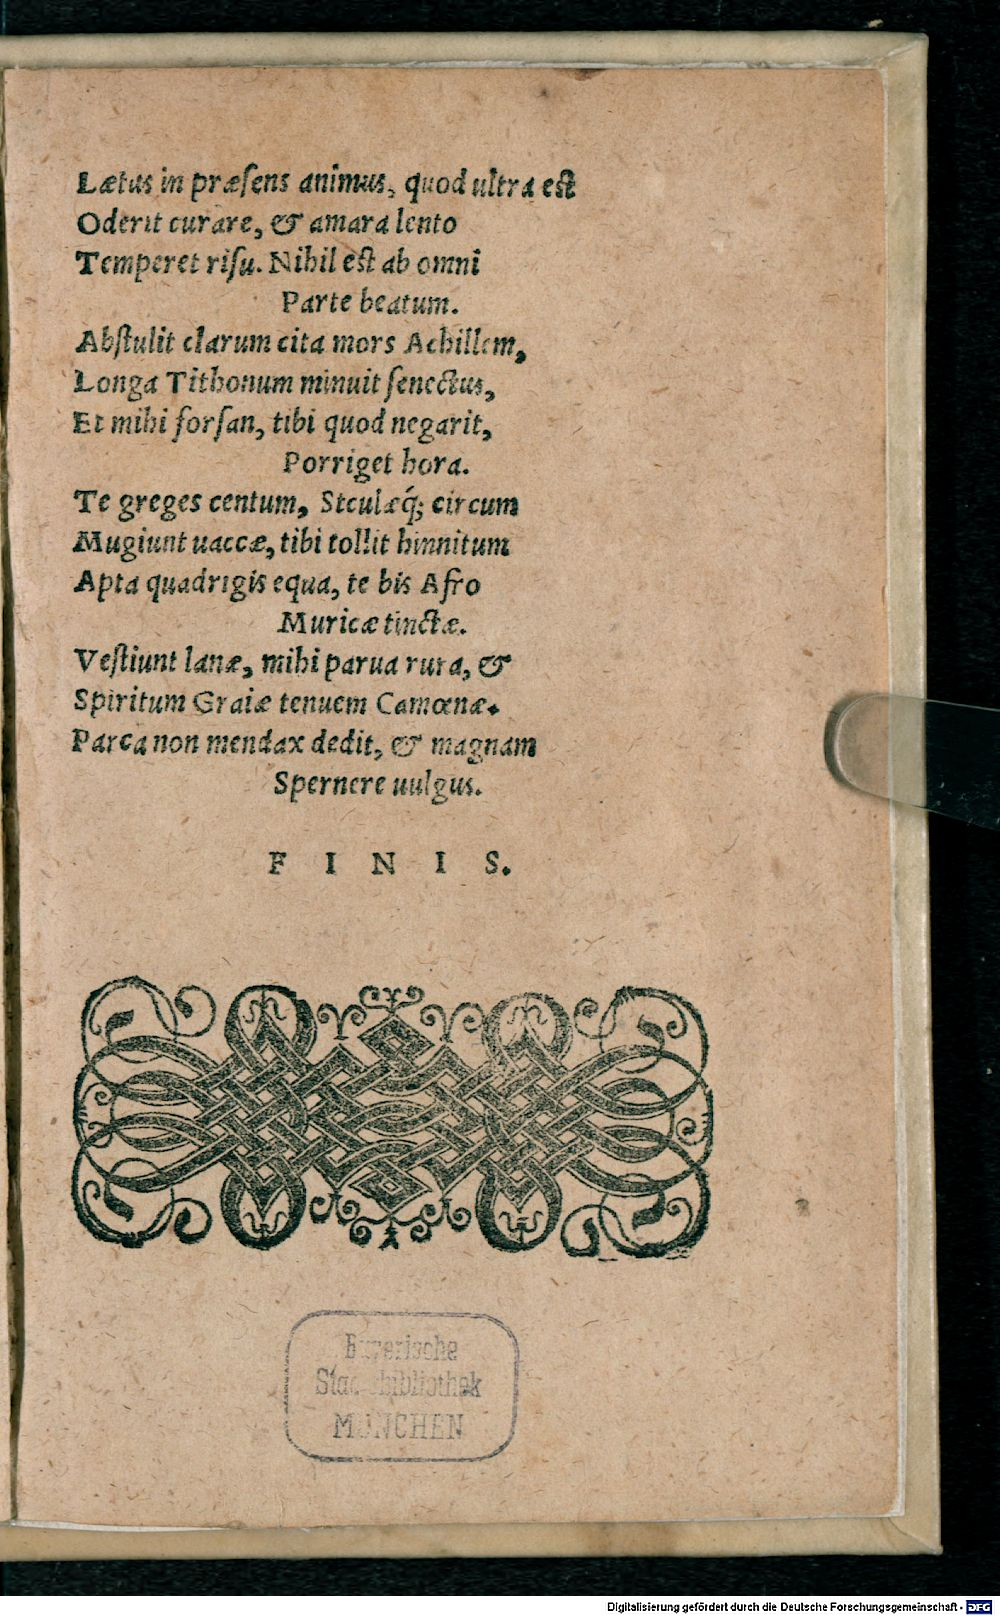 Lætus in præsens animus, quod ultra est
Oderit curare, & amara lento
Temperet risu. Nihil est ab omni
Parte beatum.
Abstulit clarum cita mors Achillem,
Longa Tithonum minuit senectus,
Et mihi forsan, tibi quod negarit,
Porriget hora.
Te greges centum, Siculæq́; circum
Mugiunt uaccæ, tibi tollit hinnitum
Apta quadrigis equa, te bis Afro
Muricæ tinctæ.
Vestiunt lanæ, mihi parua rura, &
Spiritum Graiæ tenuem Camœnæ.
Parca non mendax dedit, & magnam
Spernere uulgus.
F I N I S.
Bayerische
Staatsbibliothek
MÜNCHEN
Digitalisierung gefördert durch die Deutsche Forschungsgemeinschaft - DFG